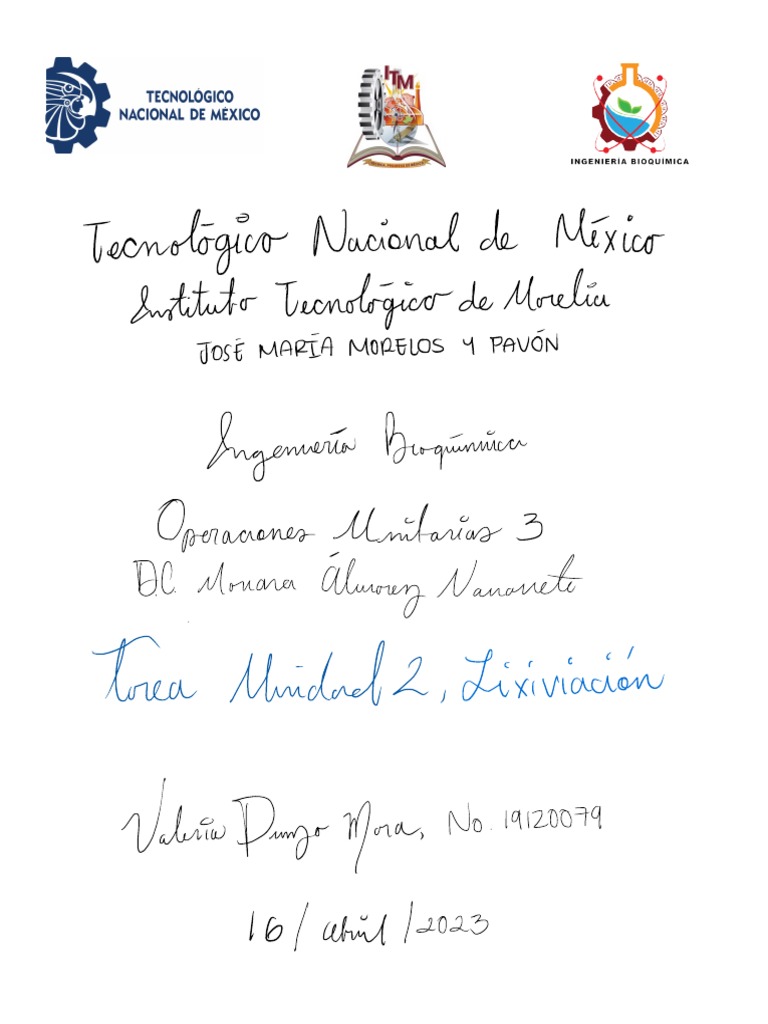 TECNOLÓGICO
NACIONAL DE MÉXICO
ITM
INGENIERÍA BIOQUÍMICA
Tecnológico Nacional de México
Instituto Tecnológico de Morelia
JOSÉ MARÍA MORELOS Y PAVÓN
Ingeniería Bioquímica
Operaciones Unitarias 3
D.C. Álvarez
Tarea Unidad 2, Lixiviación
Valeria Mora, No. 19120079
16/abril/2023